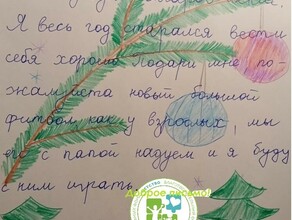 Я весь год старался вести
себя хорошо Подари мне по-
жалуйста новый большой
фитбол как у взрослых, мы
его с папой надуем и я буду
с ним играть.
Доброе письмо!